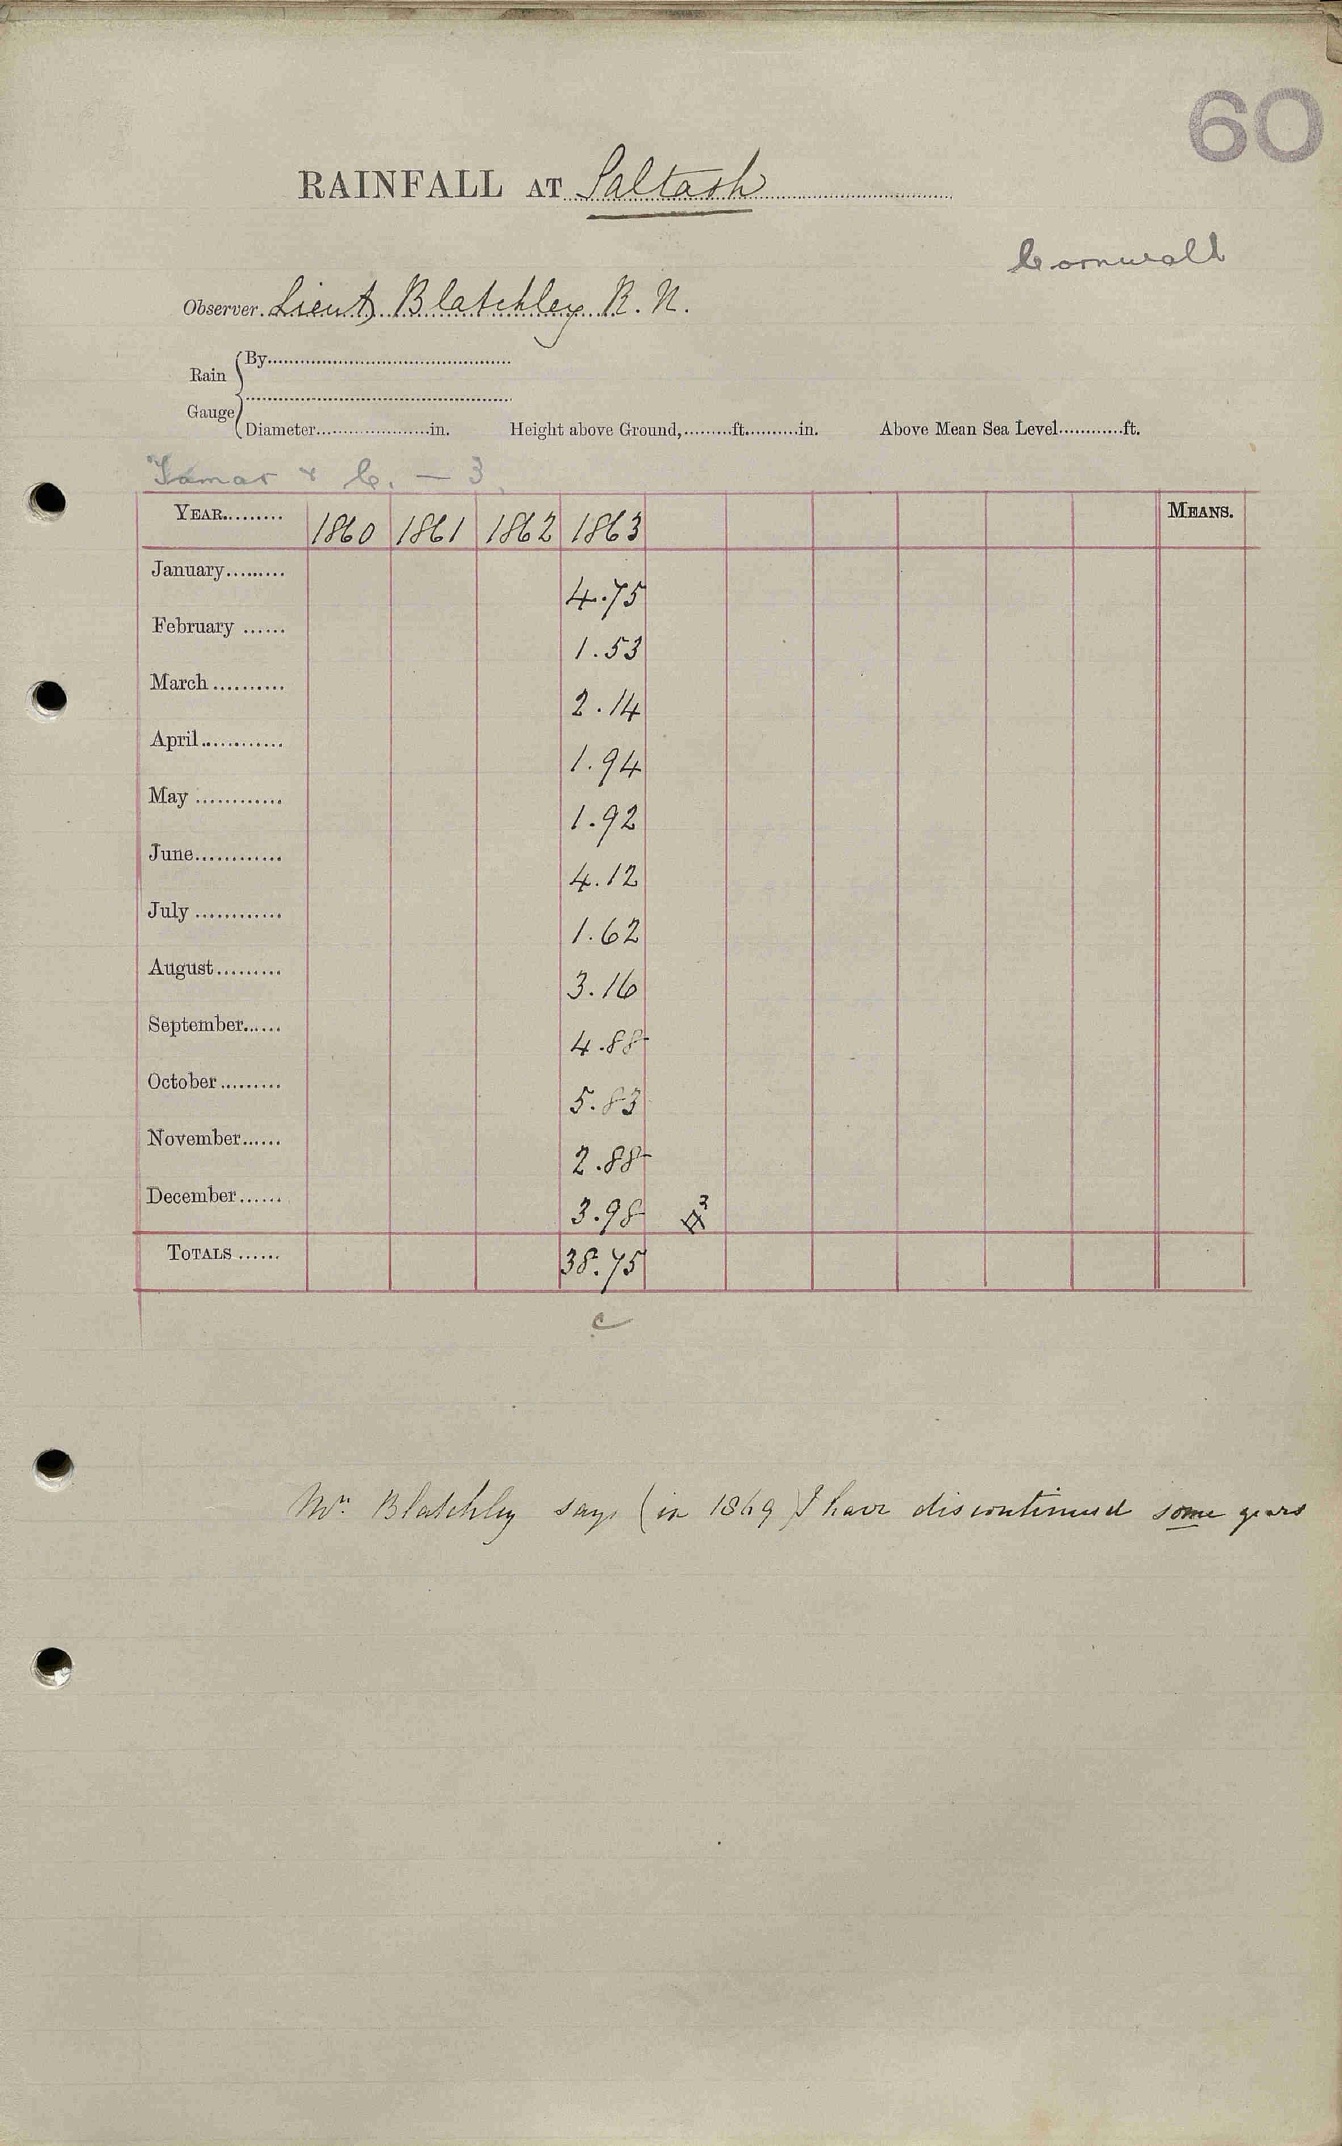 60
RAINFALL AT Saltash
Cornwall
Observer. Lieut Blatchley R. N.
Rain Gauge
By
Diameter in. Height above Ground, ft. in. Above Mean Sea Level ft.
Tamar & C. — 3
YEAR 1860 1861 1862 1863 MEANS.
January 4.75
February 1.53
March 2.14
April 1.94
May 1.92
June 4.12
July 1.62
August 3.16
September 4.88
October 5.83
November 2.88
December 3.98 3
TOTALS 38.75
c
Mr. Blatchley says (in 1869) I have discontinued some years